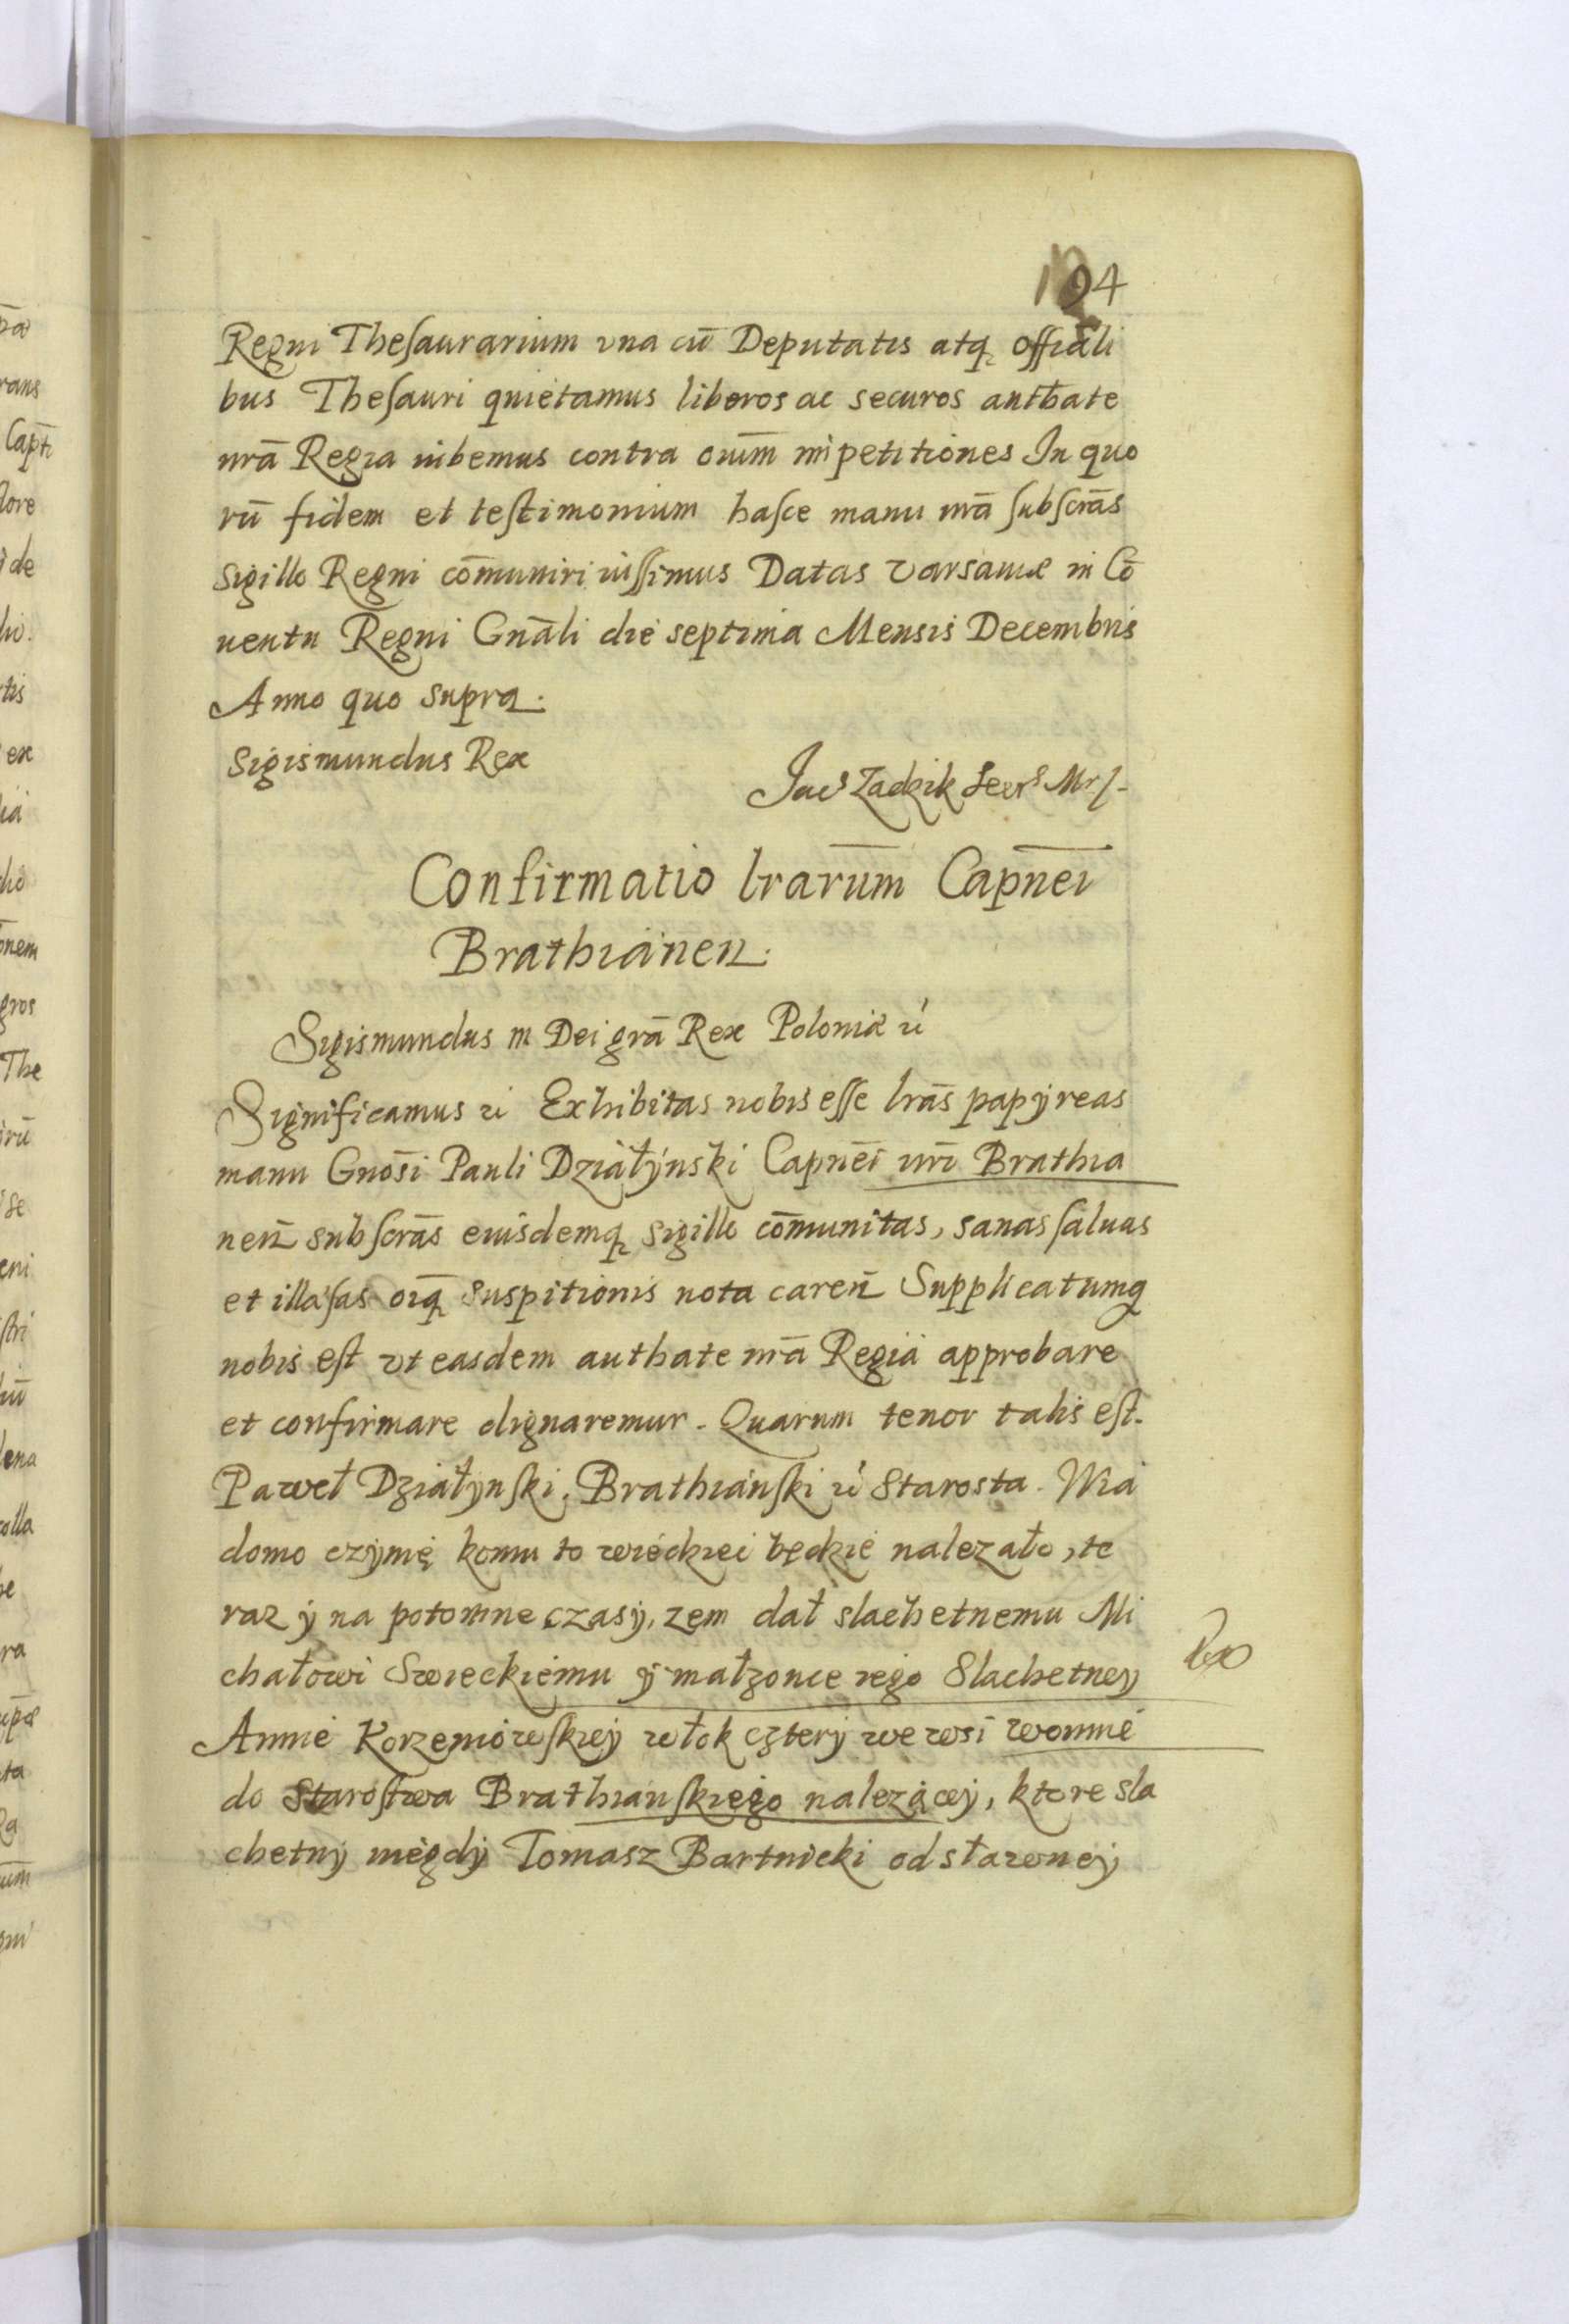 194
Regni Theſaurarium vna cū Deputatis atq. offiāli
bus Theſauri quietamus liberos ac securos authate
nrā Regia iubemus contra oium impetitiones In quo
rū fidem et teſtimonium haſce manu nrā ſubſcrās
Sigillo Regni cōmuniri iuſſimus Datas Varsauiæ in Cō
uentu Regni Gnāli die septima Mensis Decembris
Anno quo supra.
Sigismundus Rex
Jac Zadzik Secrs Mr
Confirmatio lrarūm Capnei
Brathianen.
Sigismundus III Dei grā Rex Poloniæ
Significamus Exhibitas nobis eſſe lrās papÿreas
manu Gnōsi Pauli Dziáłÿnski Capnēi nrī Brathia
nen̄ subſcrās eiusdemq. sigillo cōmunitas, sanas ſaluas
et illæſas oīq. suspitionis nota caren̄ Supplicatumq
nobis eſt vt easdem authate nrā Regia approbare
et confirmare dignaremur. Quarum tenor talis eſt.
Paweł Dziáłynſki. Brathiánſki Starosta. Wia
domo czÿnię komu to wiedziéć będzie nalezáło, te
raz ÿ na potomne czasÿ, zem dał slachetnemu Mi
chałowi Swieckiemu ÿ małzonce iego Slachetneÿ
Annie Korzeniowſkieÿ włok czterÿ we wsi Wonnie
do Staroſtwa Brathiánſkiego nalezącéÿ, ktore sla
chetnÿ niegdÿ Tomasz Bartnicki od sławneÿ